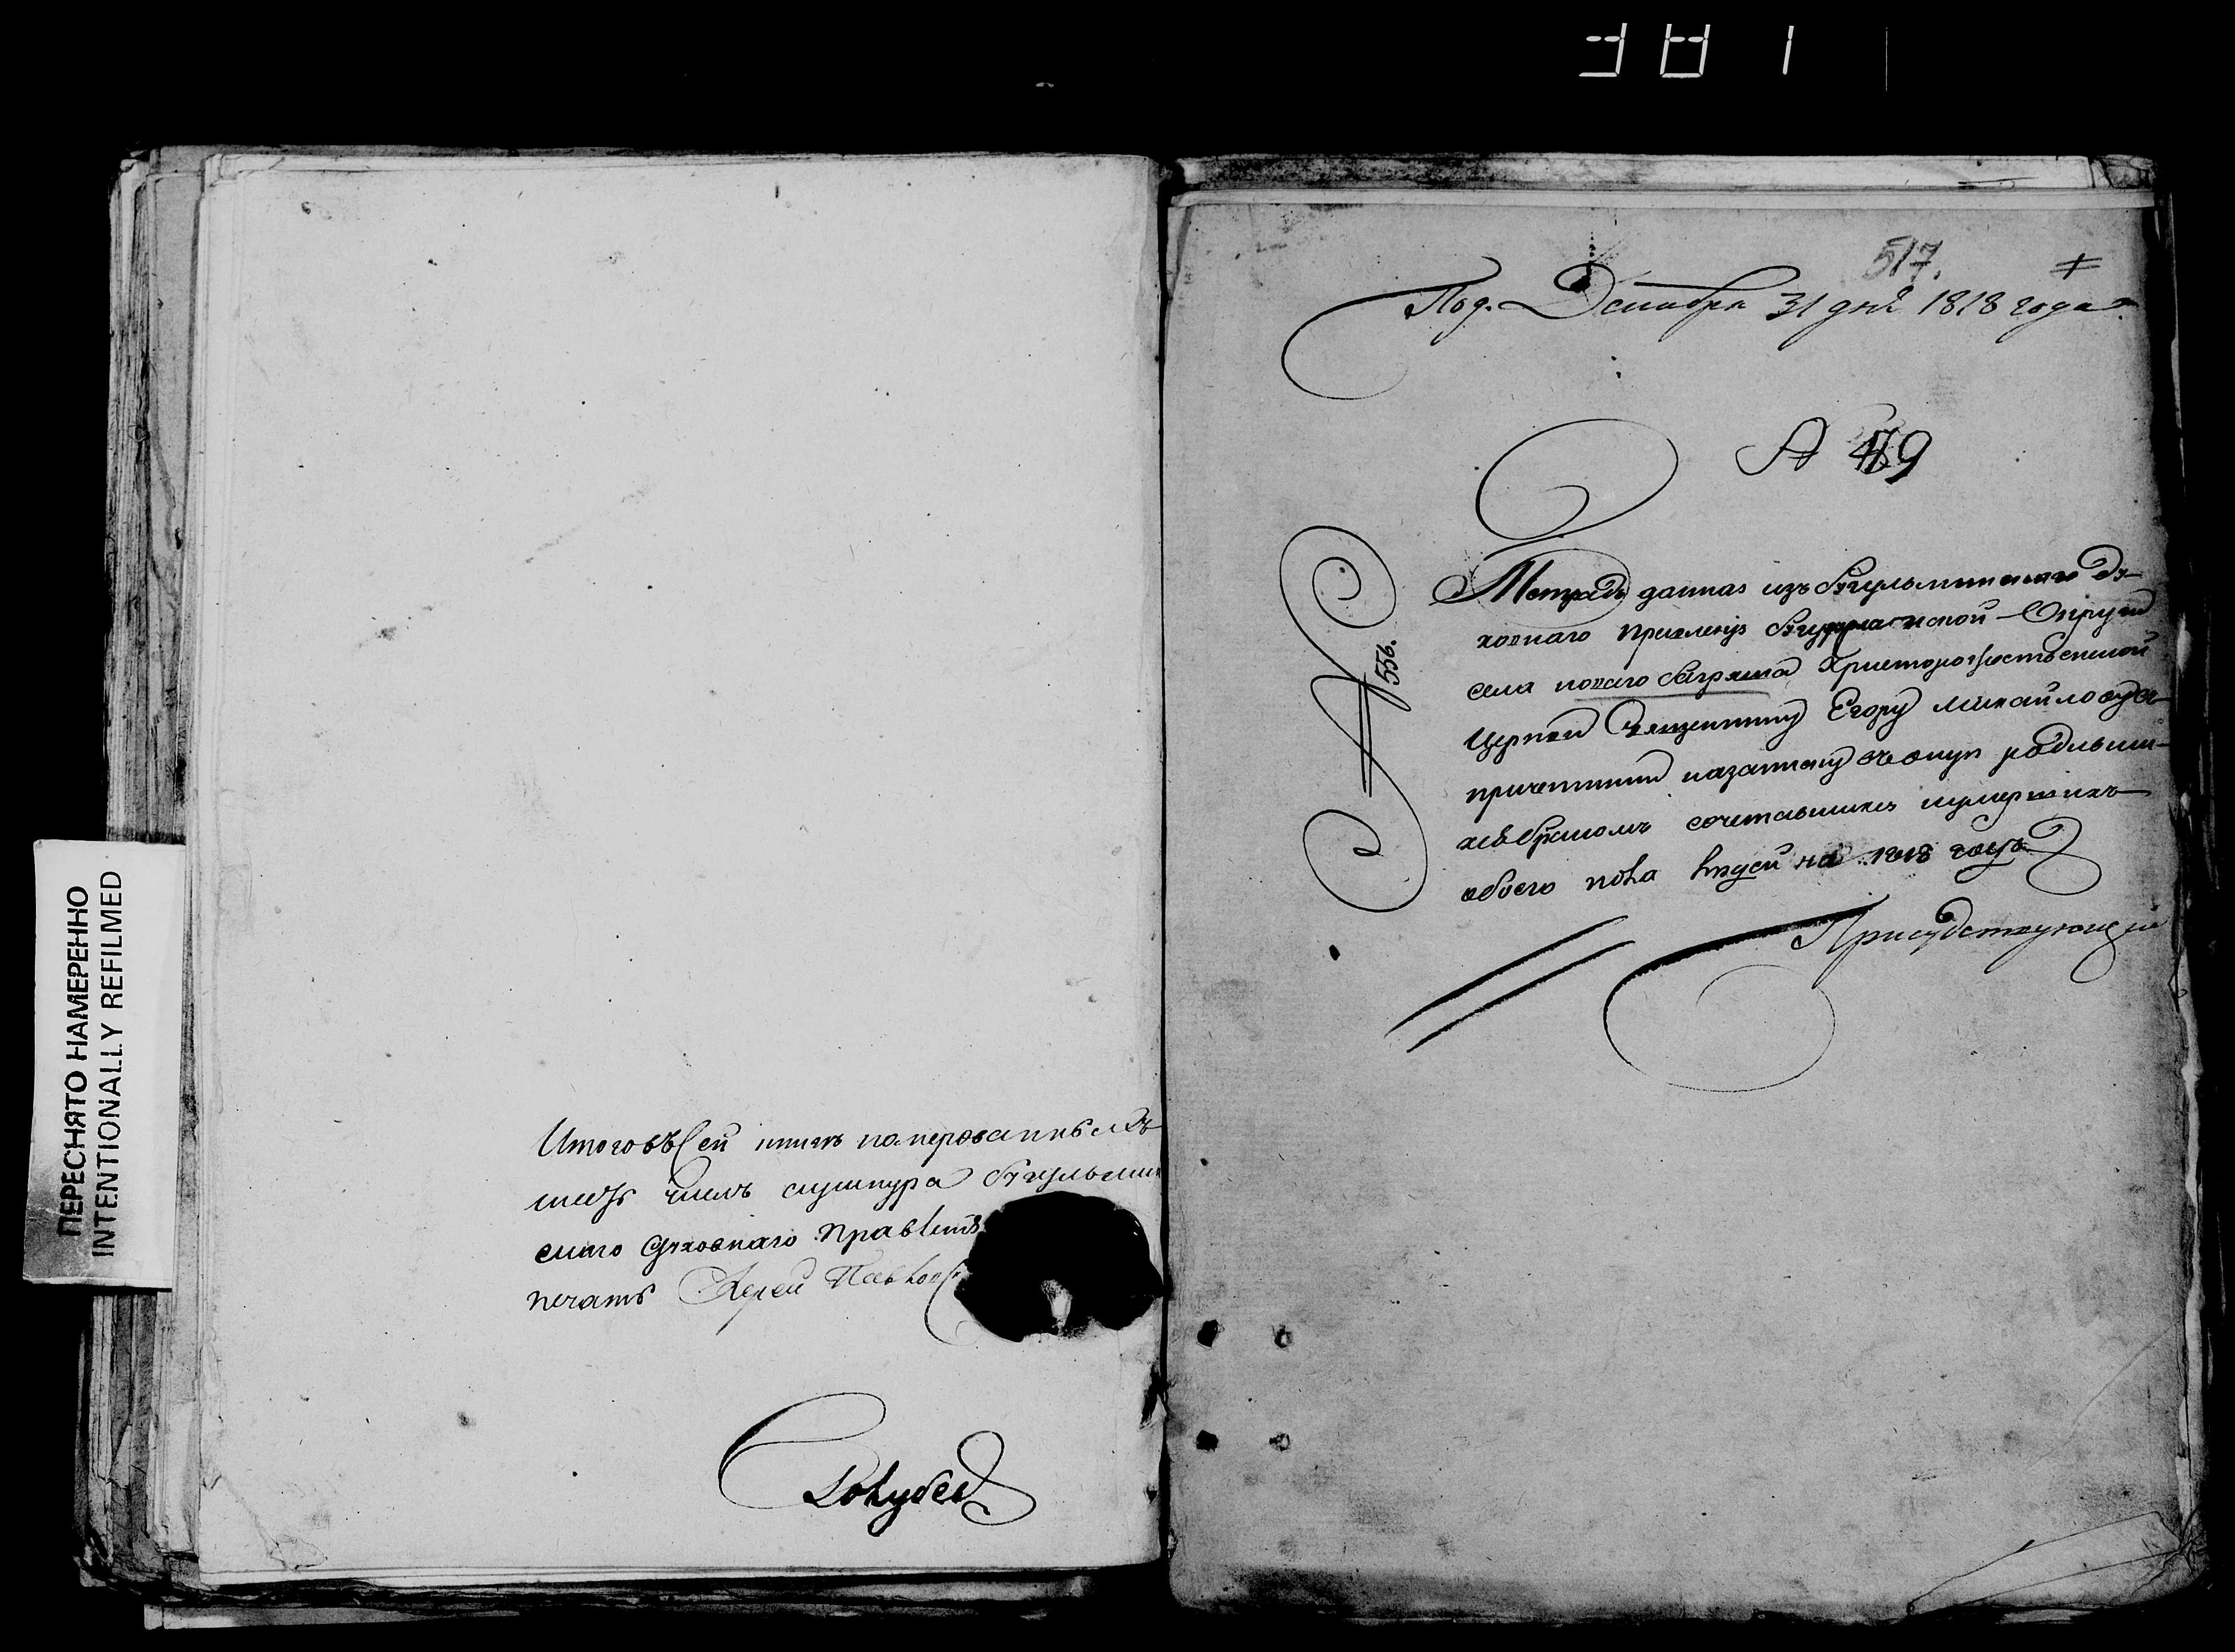 381
ПЕРЕСНЯТО НАМЕРЕНО
INTENTIONALLY REFILMED
Итого въ Сей книгѣ номерованныхъ
листъ числ шнура Бугульмин
скаго Духовнаго Правлені
печать Иерей Павло
Голубев
517.
Под. Декабря 31 дня 1818 года
№ 79
№ 556.
Тетрадь данная изъ Бугульминскаго Ду-
ховнаго правленія Бугурусланской Округи
села новаго Аксакова Христорождественской
Церкви Священнику Егору Михайлову съ
причетники на записку въ оную родивши-
хся бракомъ сочетавшихся и умершихъ
обоего пола людей на 1818 годъ
Присудствующий